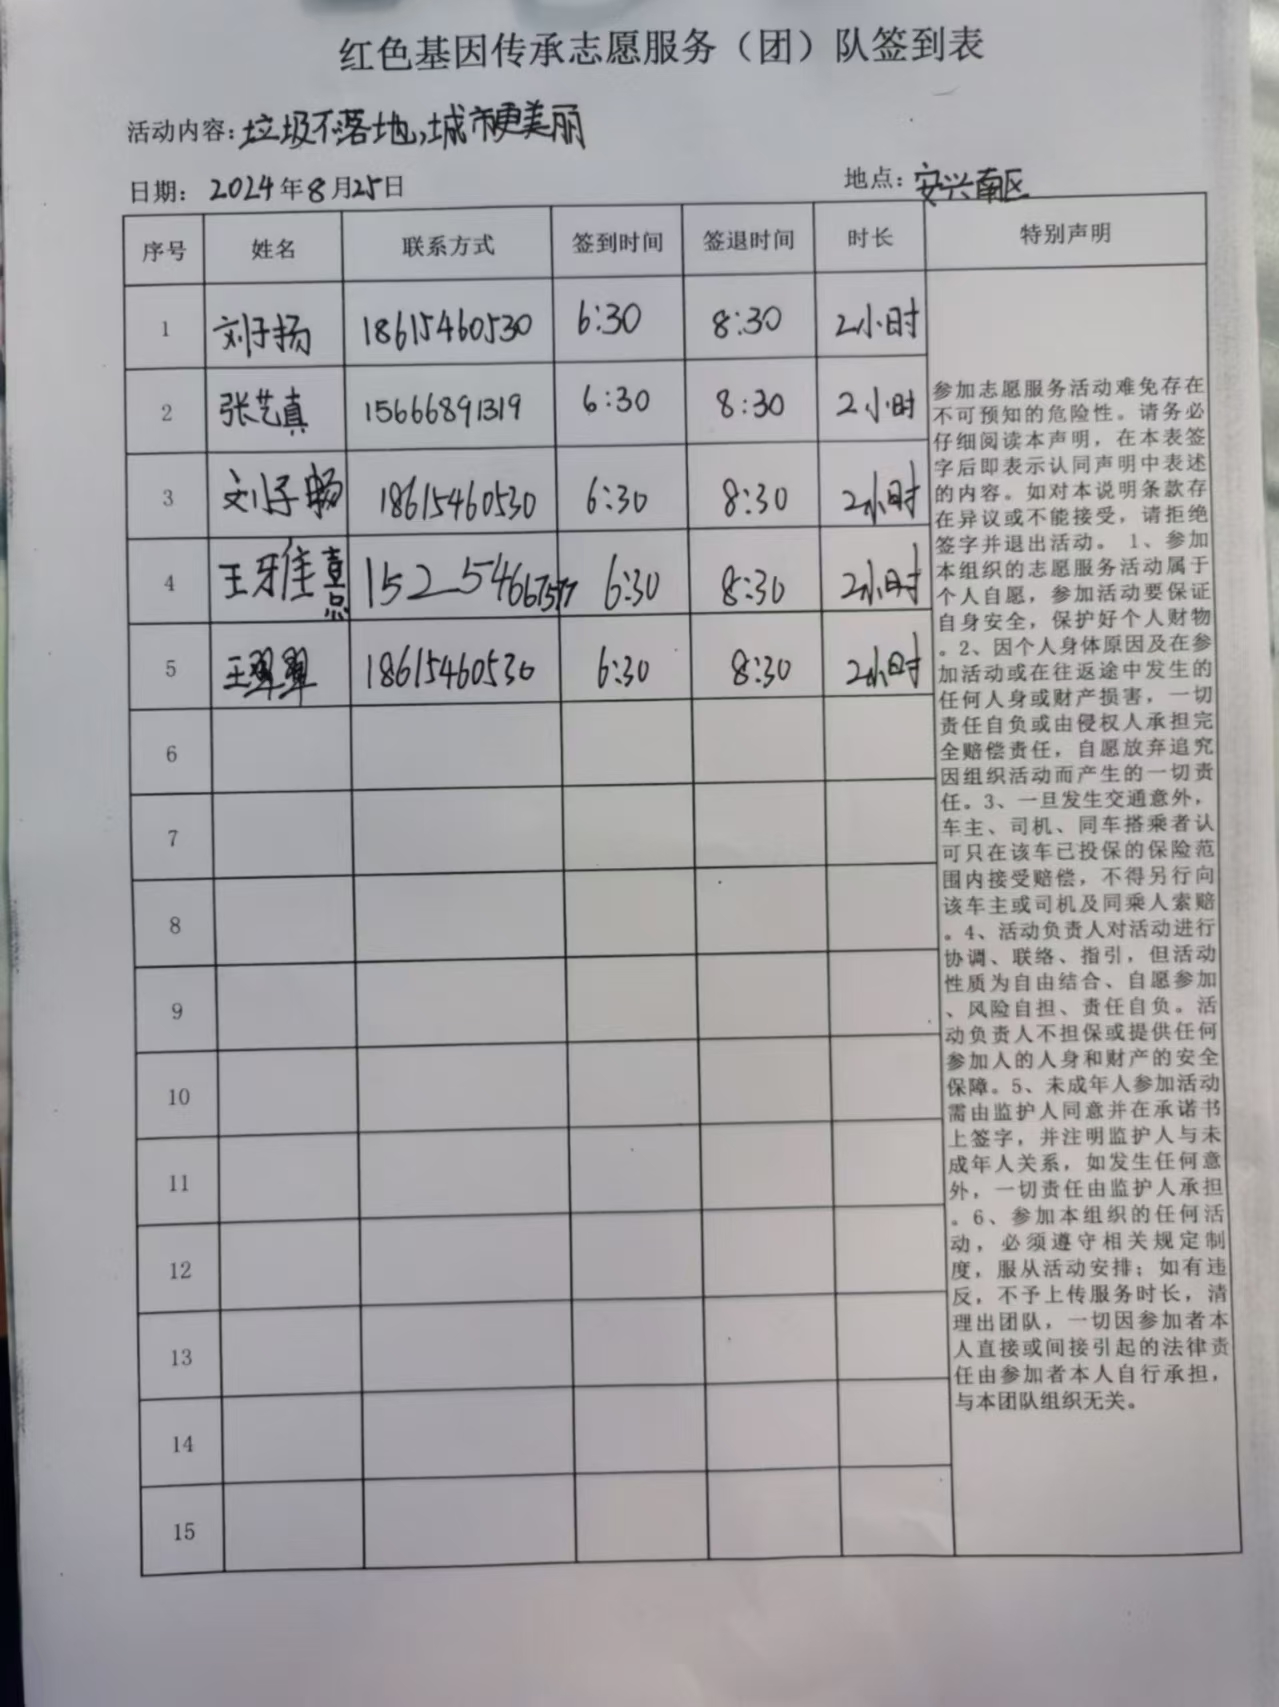 红色基因传承志愿服务（团）队签到表
活动内容：垃圾不落地，城市更美丽
日期： 2024年8月25日 地点：安兴南区
序号 姓名 联系方式 签到时间 签退时间 时长 特别声明
1 刘子扬 18615460530 6:30 8:30 2小时
2 张艺真 15666891319 6:30 8:30 2小时
3 刘子畅 18615460530 6:30 8:30 2小时
4 王牙佳 6:30 8:30 2小时
5 王翠翠 18615460530 6:30 8:30 2小时
6
7
8
9
10
11
12
13
14
15
参加志愿服务活动难免存在
不可预知的危险性。请务必
仔细阅读本声明，在本表签
字后即表示认同声明中表述
的内容。如对本说明条款存
在异议或不能接受，请拒绝
签字并退出活动。1、参加
本组织的志愿服务活动属于
个人自愿，参加活动要保证
自身安全，保护好个人财物
。2、因个人身体原因及在参
加活动或在往返途中发生的
任何人身或财产损害，一切
责任自负或由侵权人承担完
全赔偿责任，自愿放弃追究
因组织活动而产生的一切责
任。3、一旦发生交通意外，
车主、司机、同车搭乘者认
可只在该车已投保的保险范
围内接受赔偿，不得另行向
该车主或司机及同乘人索赔
。4、活动负责人对活动进行
协调、联络、指引，但活动
性质为自由结合、自愿参加
、风险自担、责任自负。活
动负责人不担保或提供任何
参加人的人身和财产的安全
保障。5、未成年人参加活动
需由监护人同意并在承诺书
上签字，并注明监护人与未
成年人关系，如发生任何意
外，一切责任由监护人承担
。6、参加本组织的任何活
动，必须遵守相关规定制
度，服从活动安排；如有违
反，不予上传服务时长，清
理出团队，一切因参加者本
人直接或间接引起的法律责
任由参加者本人自行承担，
与本团队组织无关。